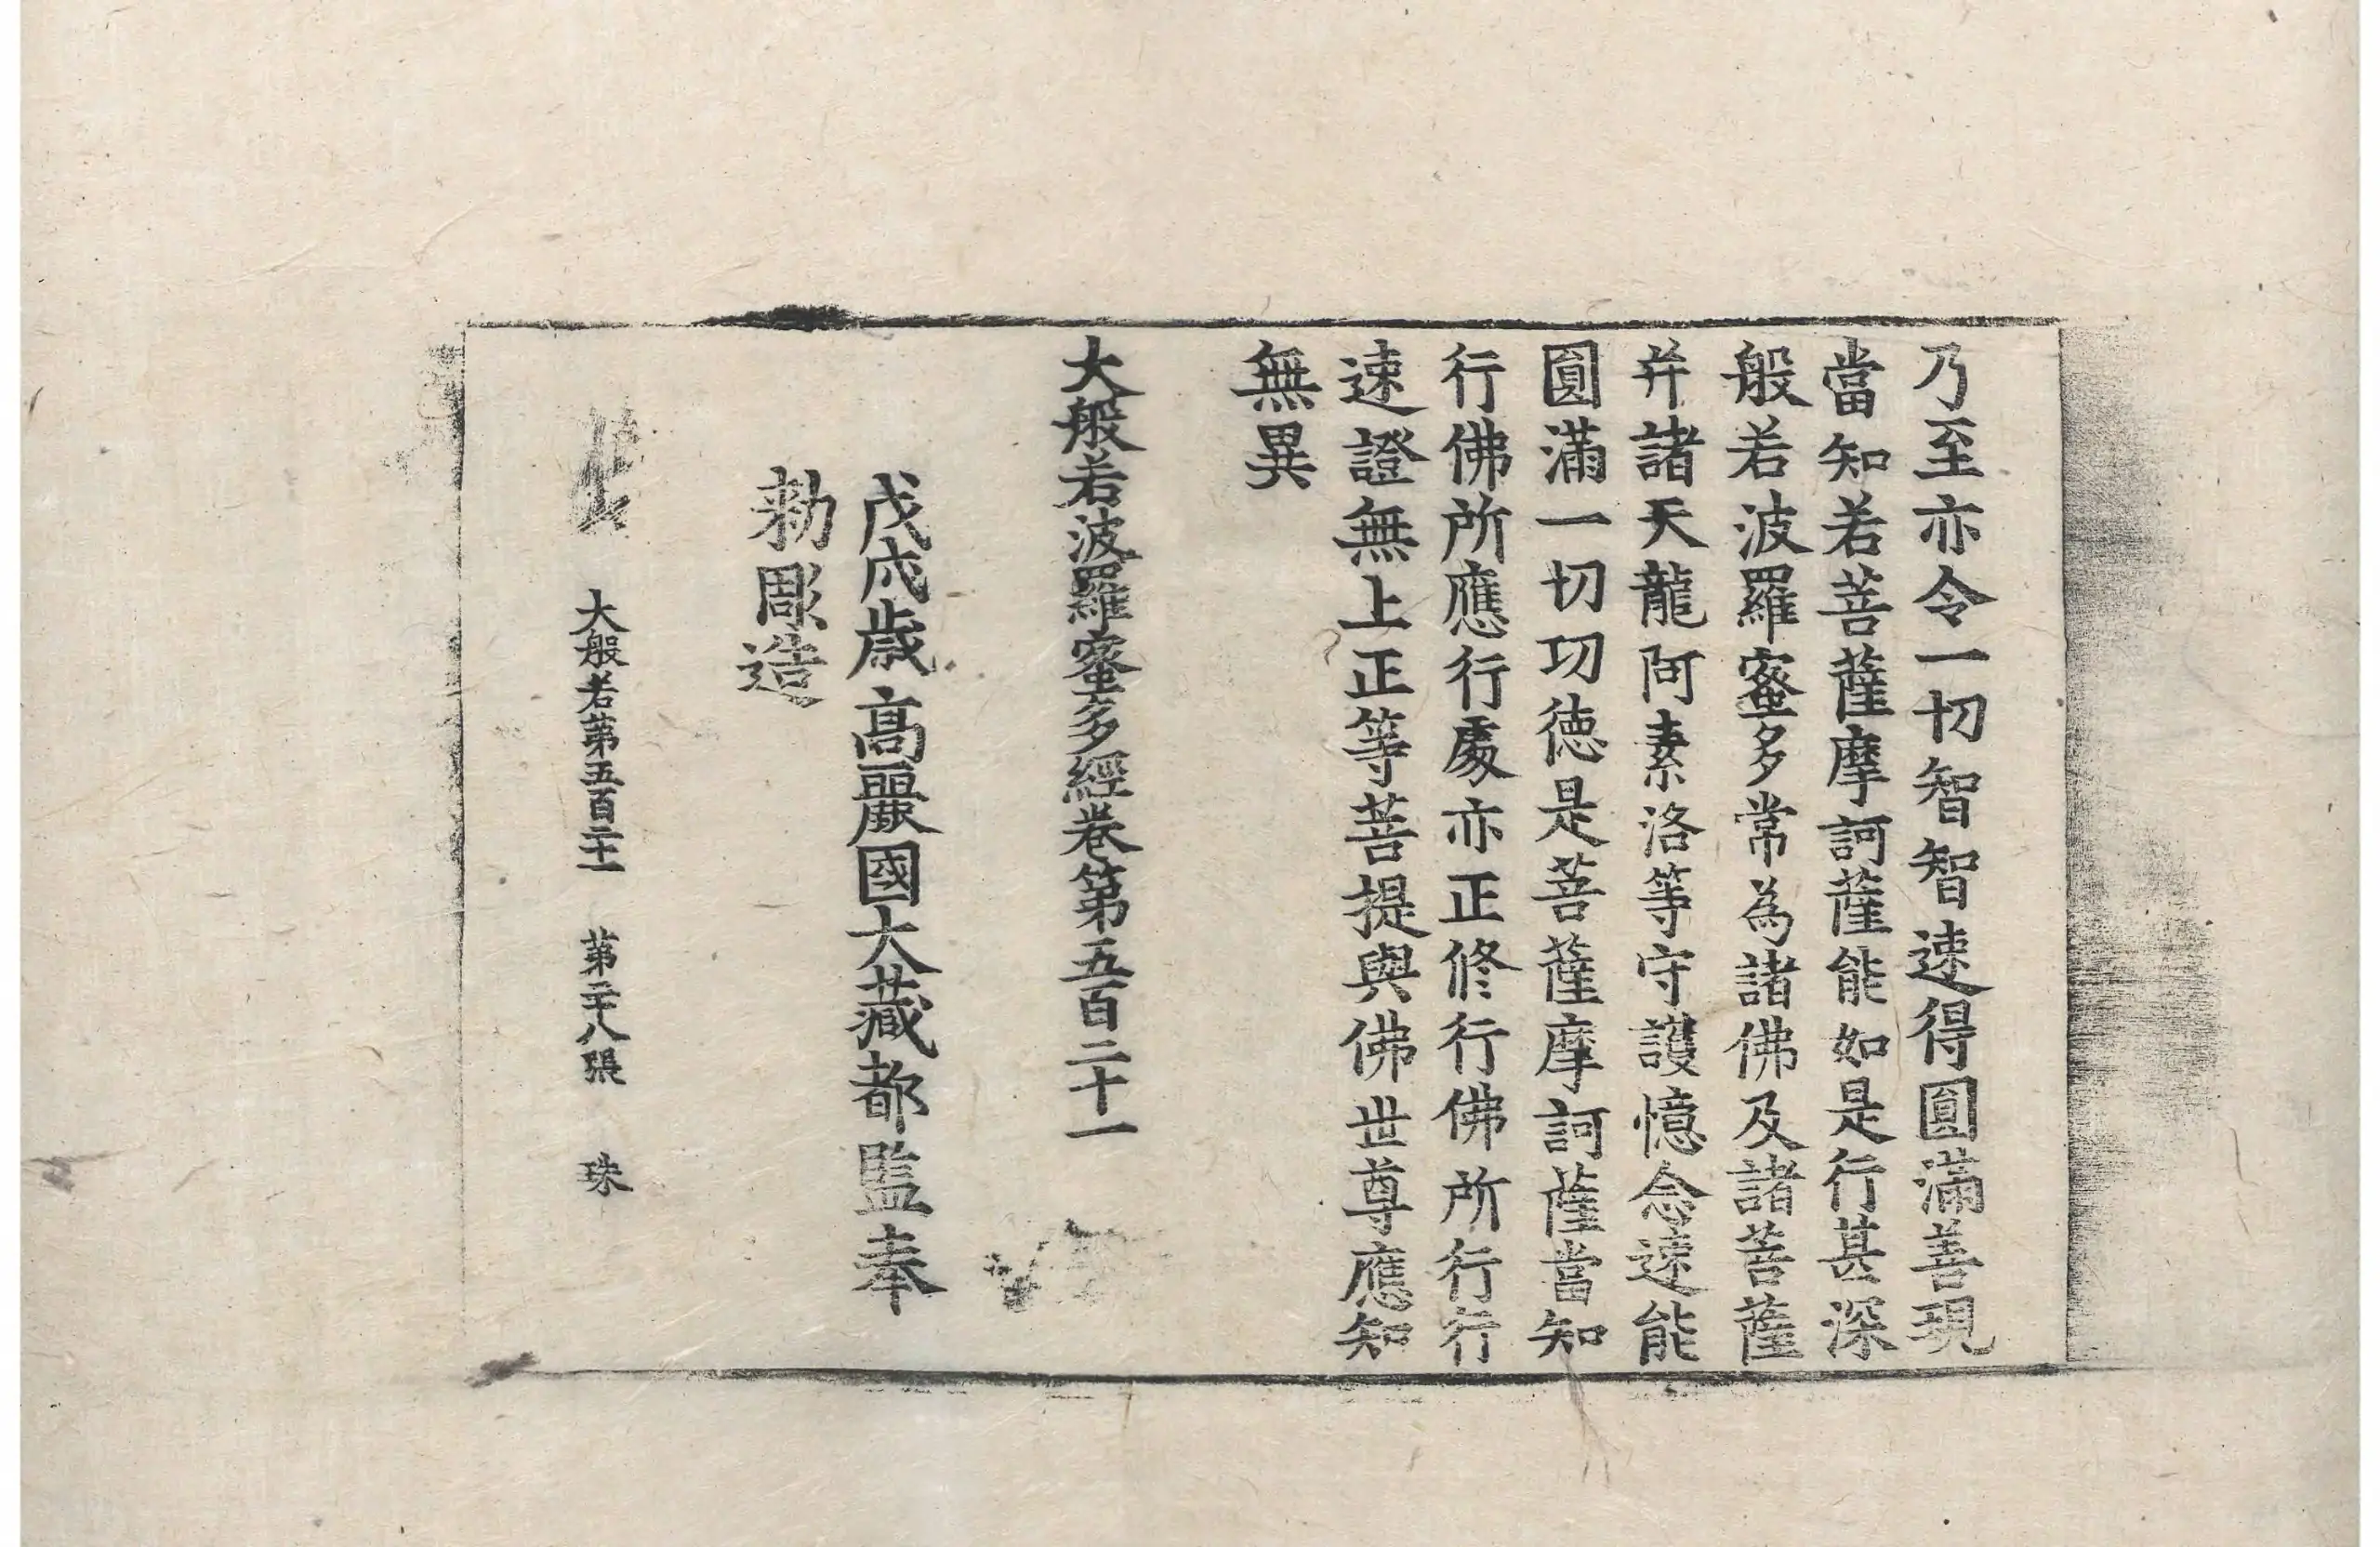 乃至亦令一切智智速得圓滿善現
當知若菩薩摩訶薩能如是行甚深
般若波羅蜜多常為諸佛及諸菩薩
幷諸天龍阿素洛等守護憶念速能
圓滿一切功德是菩薩摩訶薩當知
行佛所應行處亦正修行佛所行行
速證無上正等菩提與佛世尊應知
無異
大般若波羅蜜多經卷第五百二十一
戊戌歲高麗國大藏都監奉
勑彫造
大般若第五百二十一 第二十八張 珠